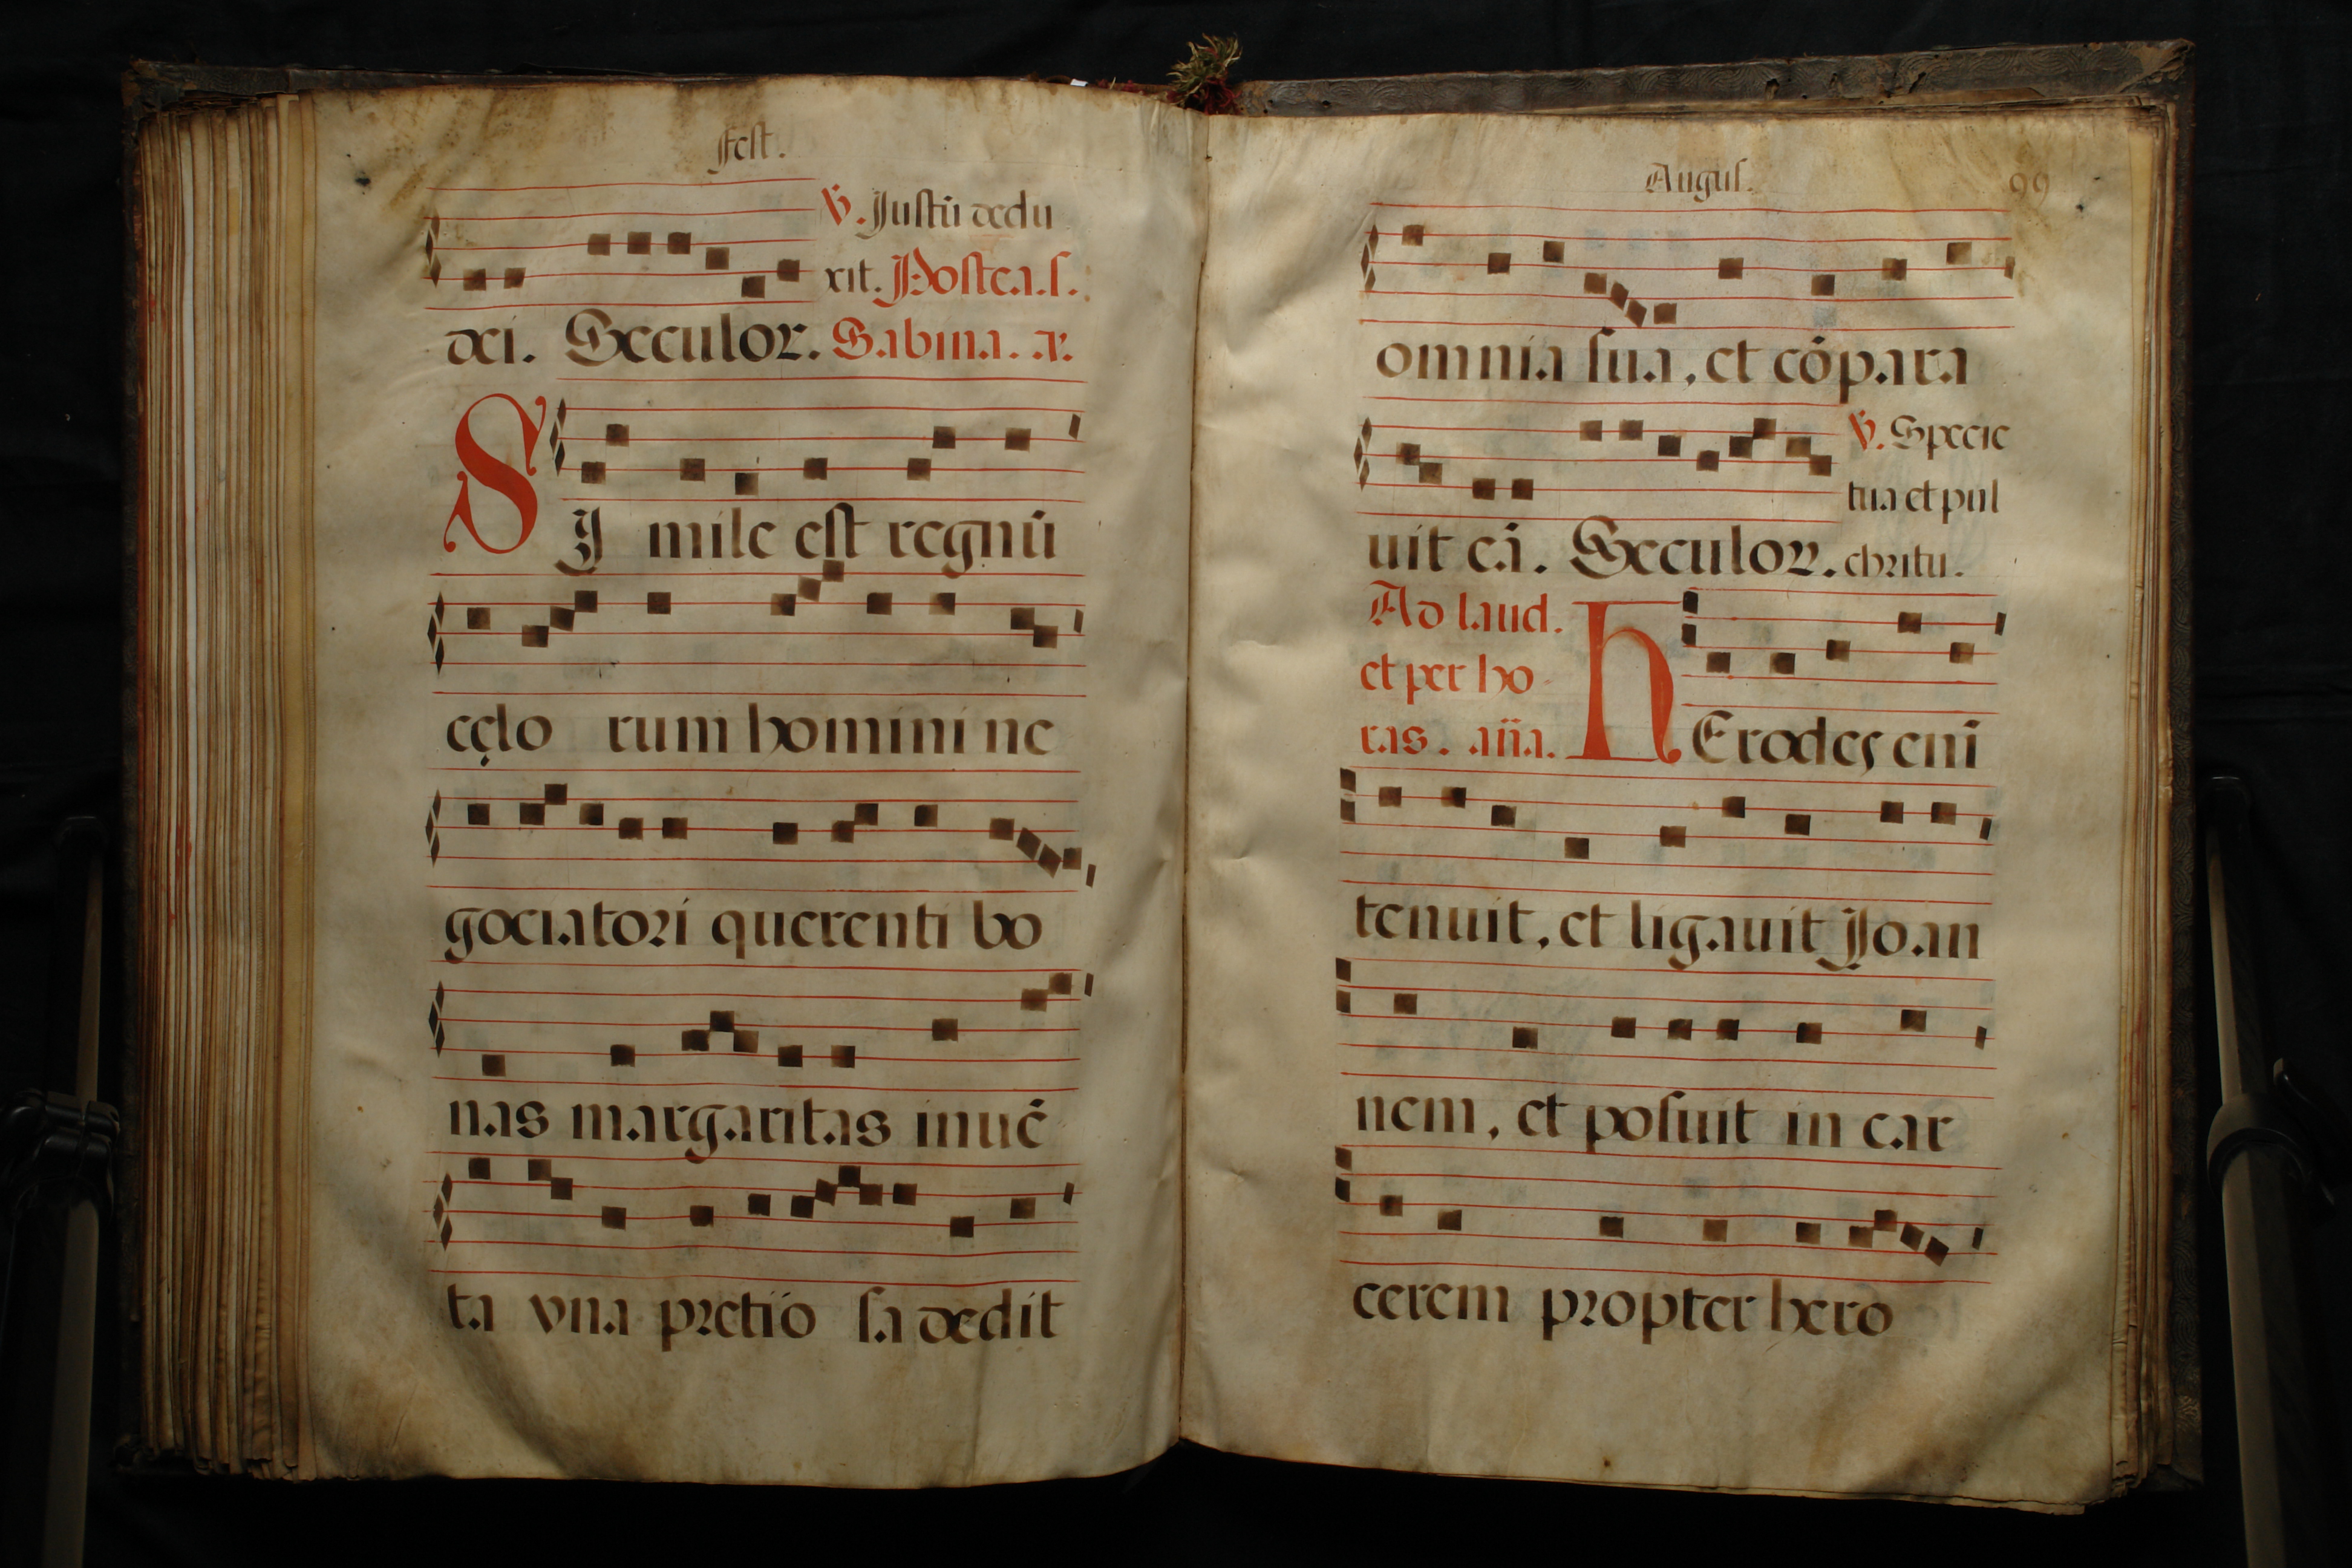 Fest.
℣. Justū dedu
xit. Postea. s.
dei. Seculor. Sabina. a.
SI mile est regnū
cęlo rum homini ne
gociatori querenti bo
nas margaritas inuē
ta vna pretio sa dedit
Augus. 99
omnia sua, et cōpara
℣. Specie
tua et pul
uit eā. Seculor. chritu.
Ad laud.
et per ho
ras. aña. HErodes eni̅
tenuit, et ligauit Joan
nem, et posuit in car
cerem propter hero